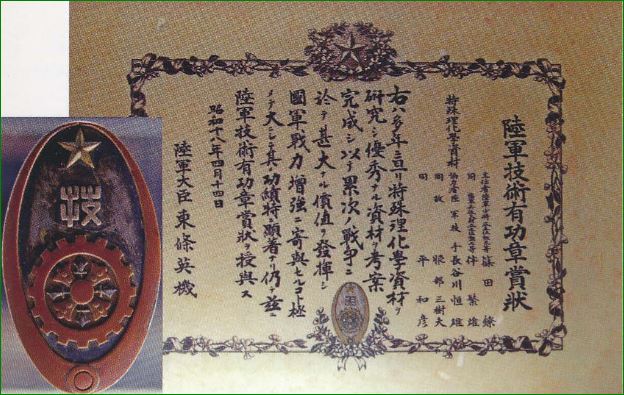 陸軍技術有功章賞狀
特殊理化學資材
主任者陸軍少將 篠田 鐐
同 伴 繁雄
協力者陸軍技手 長谷川恒雄
同 故 服部三樹夫
同 平 和彦
右ハ多年ニ亘リ特殊理化學資材ヲ
研究シ優秀ナル資材ヲ考案
完成シ以テ累次ノ戰爭ニ
於テ甚大ナル價値ヲ發揮シ
國軍戰力增強ニ寄與セルコト極
メテ大ニシテ其功績特ニ顯著ナリ仍テ茲ニ
陸軍技術有功章賞狀ヲ授與ス
昭和十八年四月十四日
陸軍大臣 東條英機
技